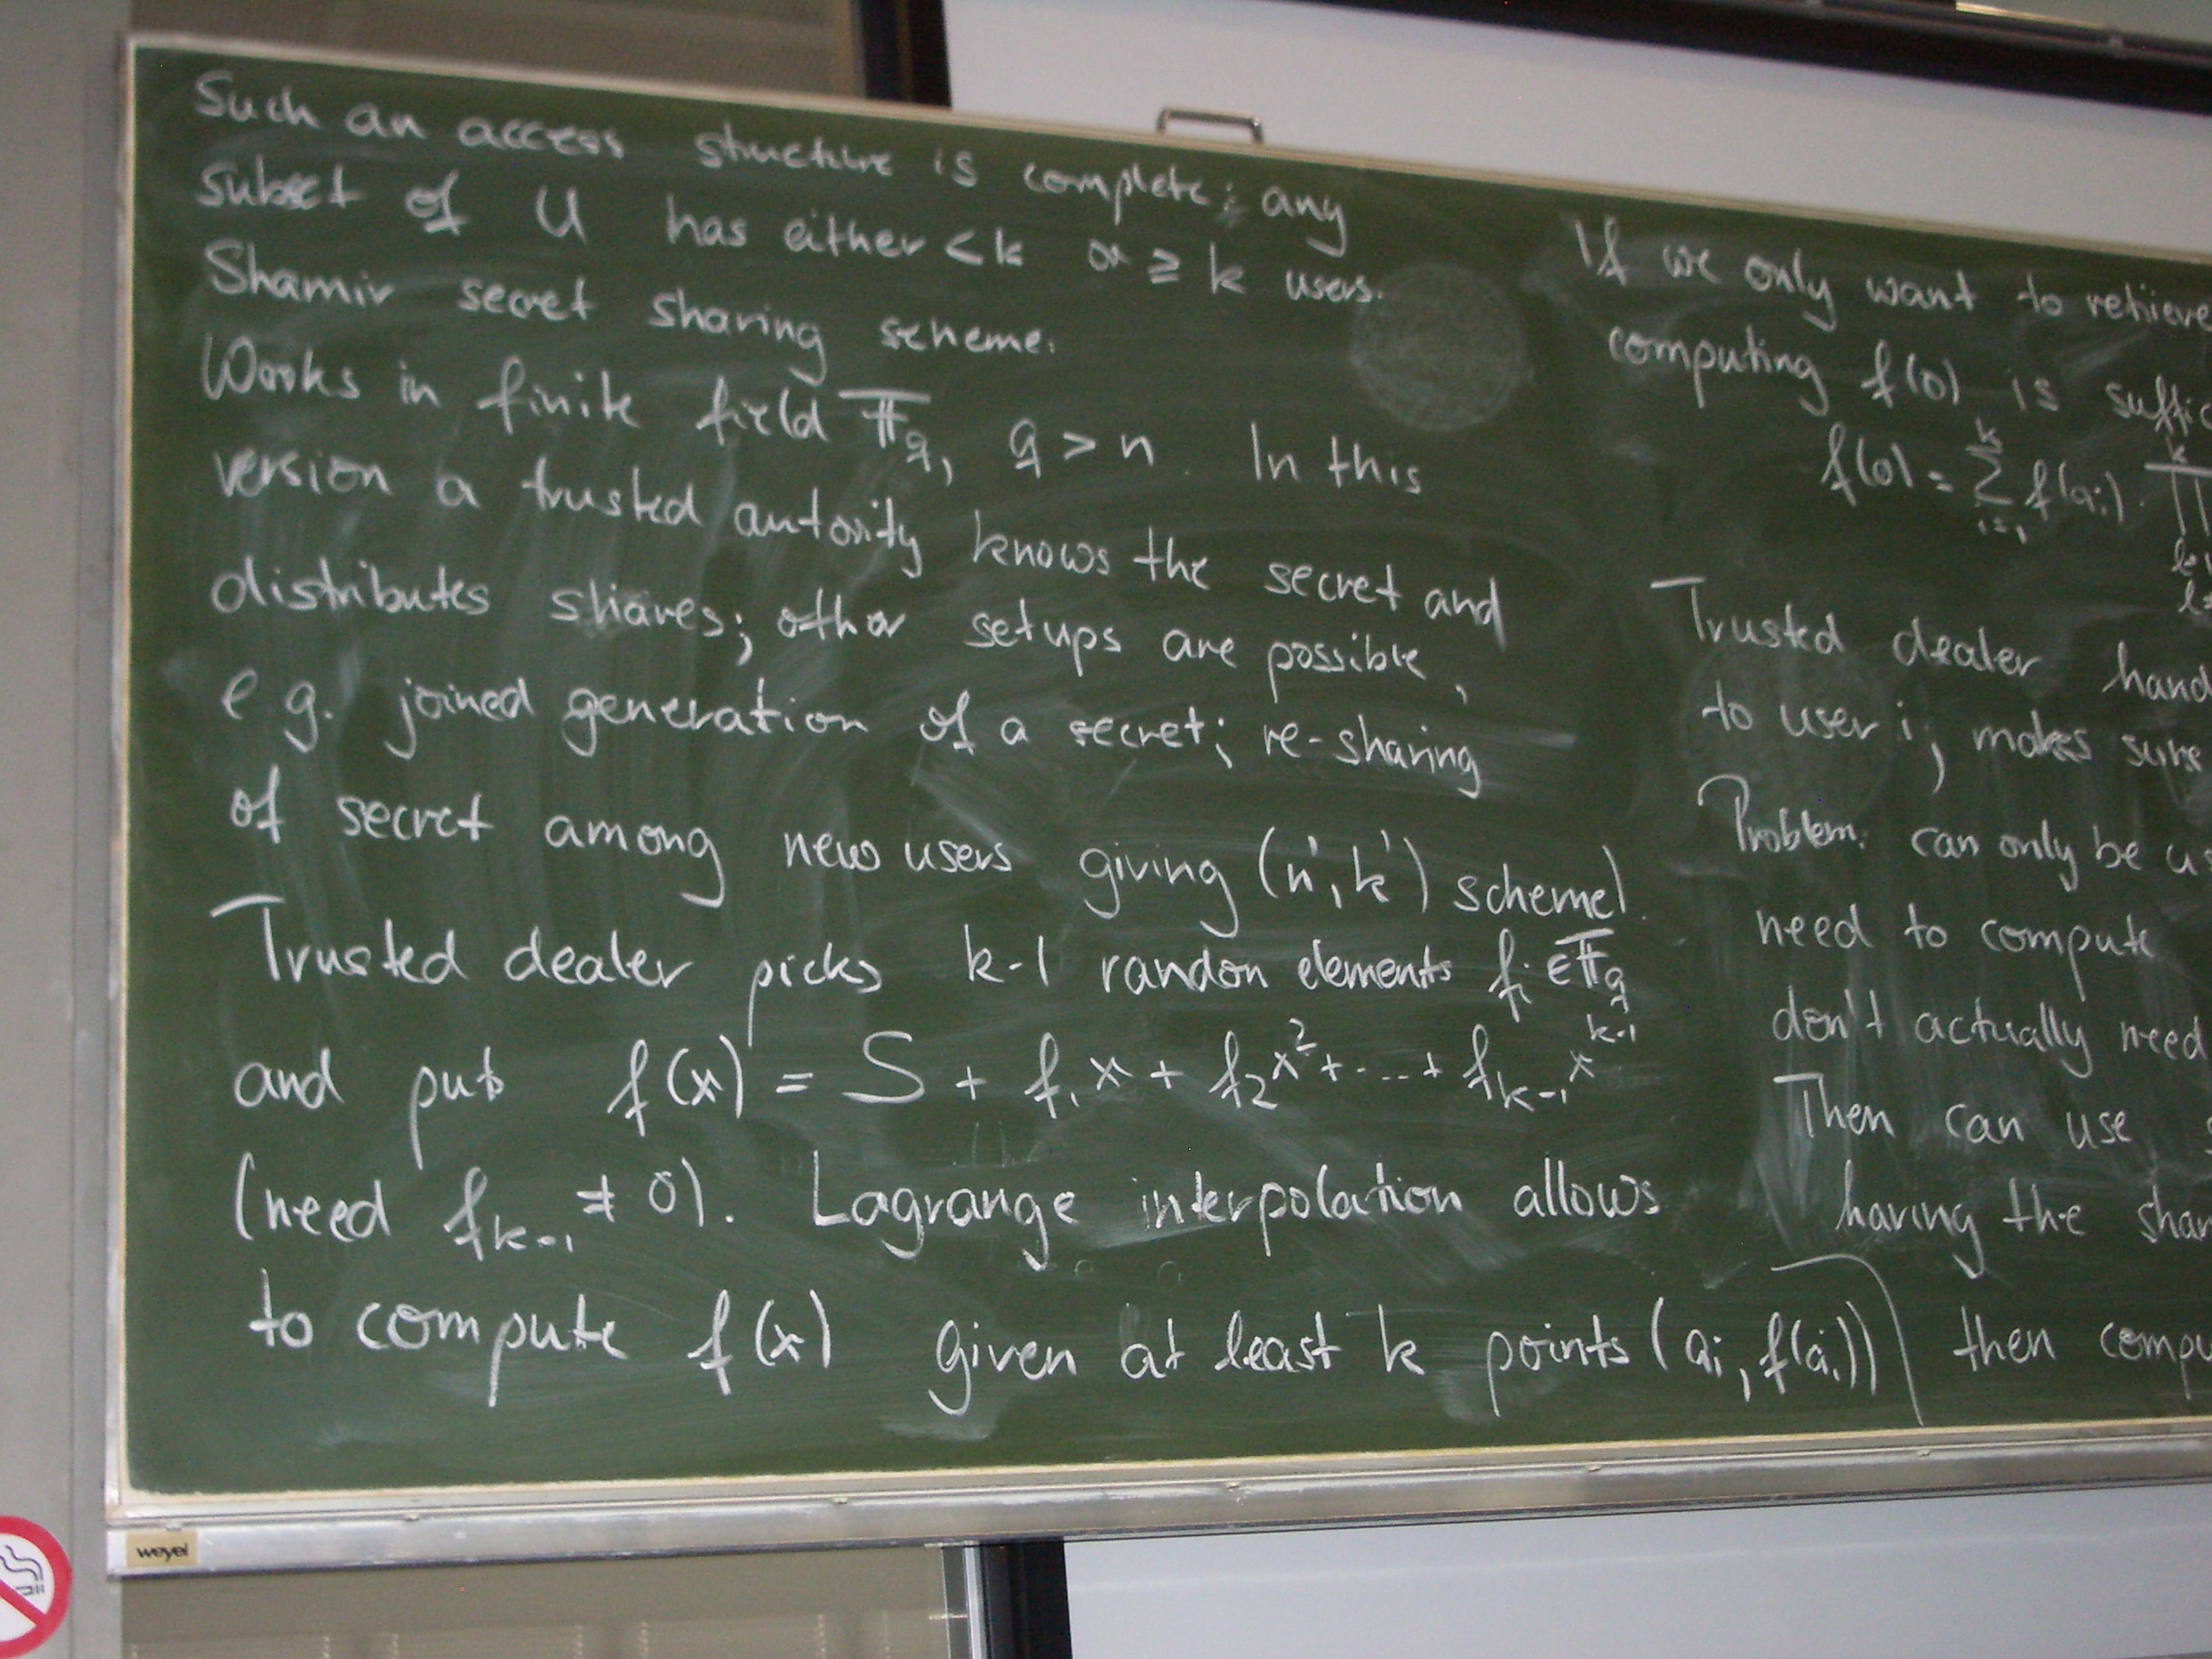 Such an access structure is complete; any
subset of U has either < k or ≥ k users.
Shamir secret sharing scheme:
Works in finite field 𝔽_q, q > n. In this
version a trusted autority knows the secret and
distributes shares; other setups are possible,
e.g. joined generation of a secret; re-sharing
of secret among new users giving (n', k') scheme).
Trusted dealer picks k-1 random elements f_i ∈ 𝔽_q
and puts f(x) = S + f_1 x + f_2 x^2 + ... + f_{k-1} x^{k-1}
(need f_{k-1} ≠ 0). Lagrange interpolation allows
to compute f(x) given at least k points (a_i, f(a_i))
If we only want to retrieve
computing f(0) is suffic
f(0) = ∑_{i=1}^{k} f(a_i) · ∏^{k}
Trusted dealer hand
to user i, makes sure
Problem: can only be us
need to compute
don't actually need
Then can use
having the shar
then compu
weyel